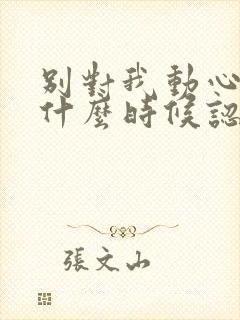 別對我動心
什麼時候認
張文山